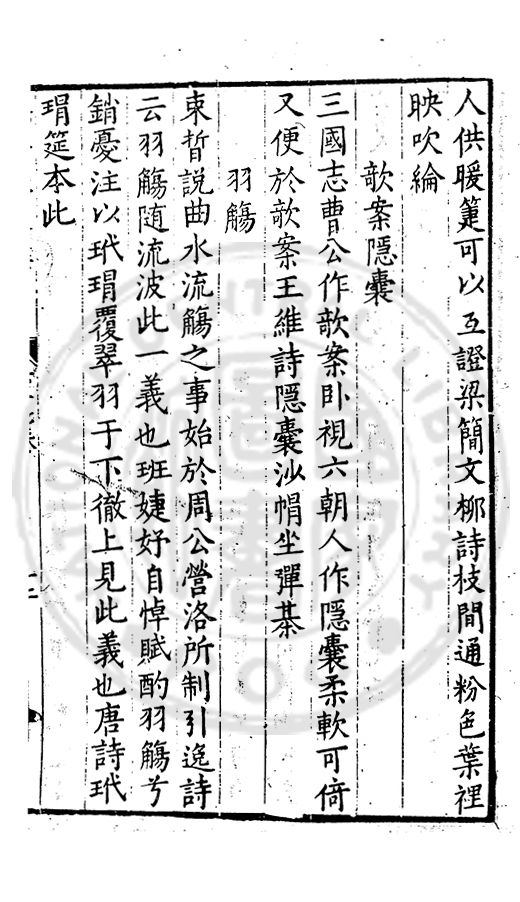 人供暖筵可以互證梁簡文柳詩枝間通粉色葉裡
映吹綸
欹案隱囊
三國志曹公作欹案卧視六朝人作隱囊柔軟可倚
又便於欹案王維詩隱囊沙帽坐彈棊
羽觴
束晳說曲水流觴之事始於周公營洛所制引逸詩
云羽觴随流波此一義也班婕妤自悼賦酌羽觴兮
銷憂注以玳瑁覆翠羽于下徹上見此義也唐詩玳
瑁筵本此